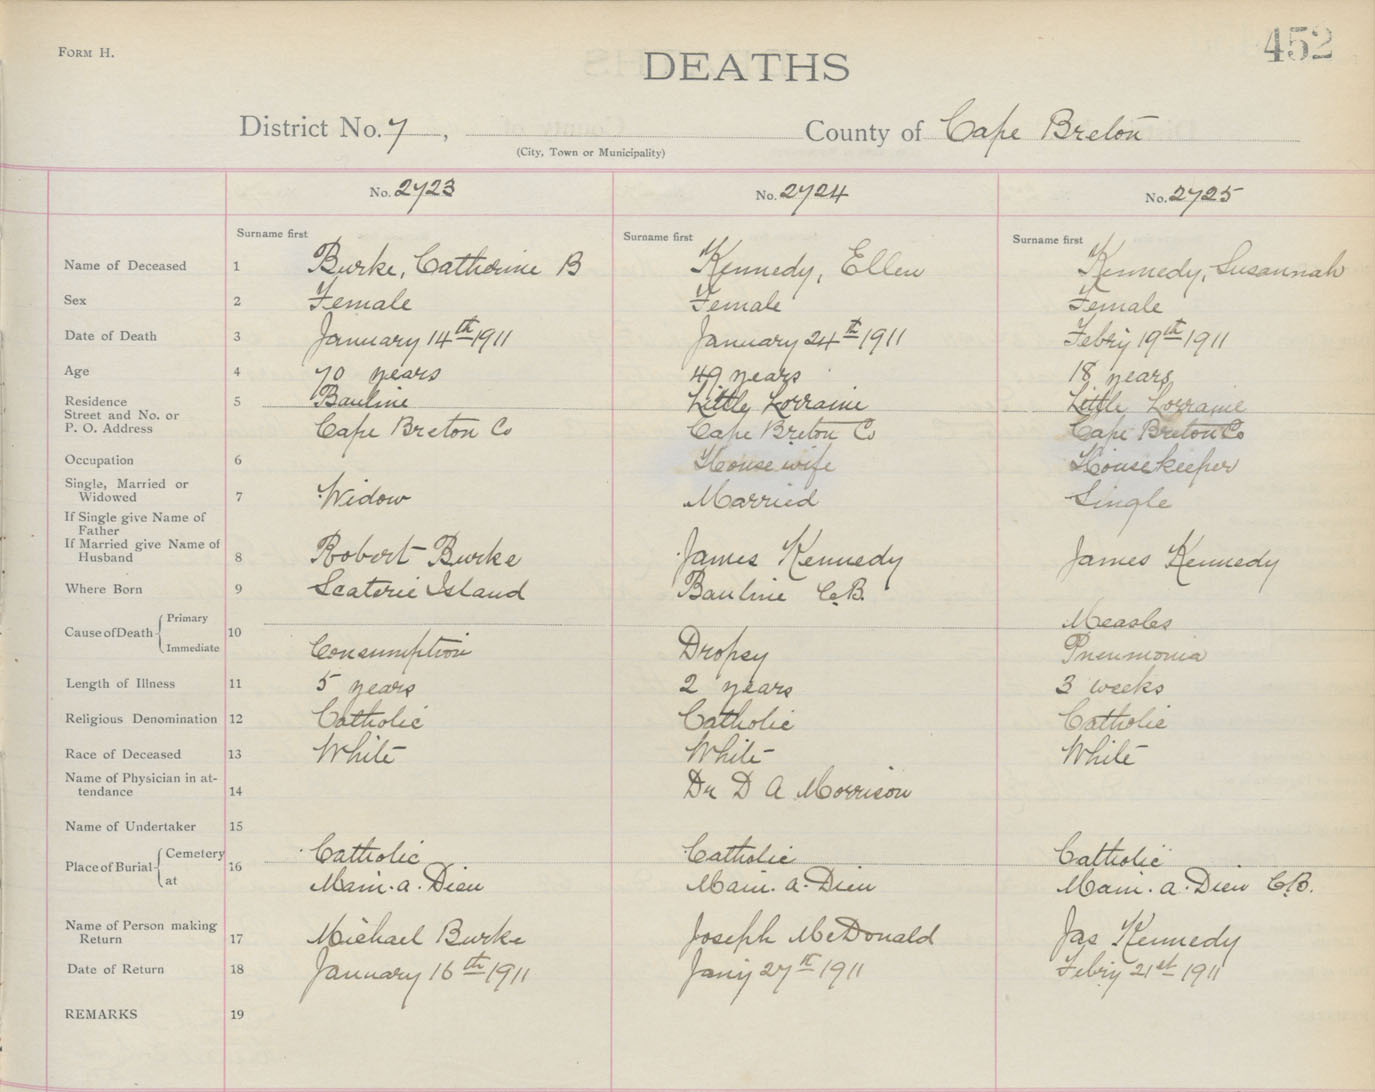 FORM H.
452
DEATHS
District No. 7, County of Cape Breton
(City, Town or Municipality)
No. 2723 No. 2724 No. 2725
Surname first Surname first Surname first
Name of Deceased 1 Burke, Catherine B Kennedy, Ellen Kennedy, Susannah
Sex 2 Female Female Female
Date of Death 3 January 14th 1911 January 24th 1911 Febry 19th 1911
Age 4 70 years 49 years 18 years
Residence 5 Bauline Little Lorraine Little Lorraine
Street and No. or
P. O. Address Cape Breton Co Cape Breton Co Cape Breton Co
Occupation 6 Housewife Housekeeper
Single, Married or
Widowed 7 Widow Married Single
If Single give Name of
Father
If Married give Name of
Husband 8 Robert Burke James Kennedy James Kennedy
Where Born 9 Scaterie Island Bauline C.B.
Cause of Death Primary Measles
10
Immediate Consumption Dropsy Pneumonia
Length of Illness 11 5 years 2 years 3 weeks
Religious Denomination 12 Catholic Catholic Catholic
Race of Deceased 13 White White White
Name of Physician in at-
tendance 14 Dr D A Morrison
Name of Undertaker 15
Place of Burial Cemetery 16 Catholic Catholic Catholic
at Main. a. Dieu Main. a. Dieu Main. a. Dieu C.B.
Name of Person making
Return 17 Michael Burke Joseph McDonald Jas Kennedy
Date of Return 18 January 16th 1911 Jany 27th 1911 Febry 21st 1911
REMARKS 19